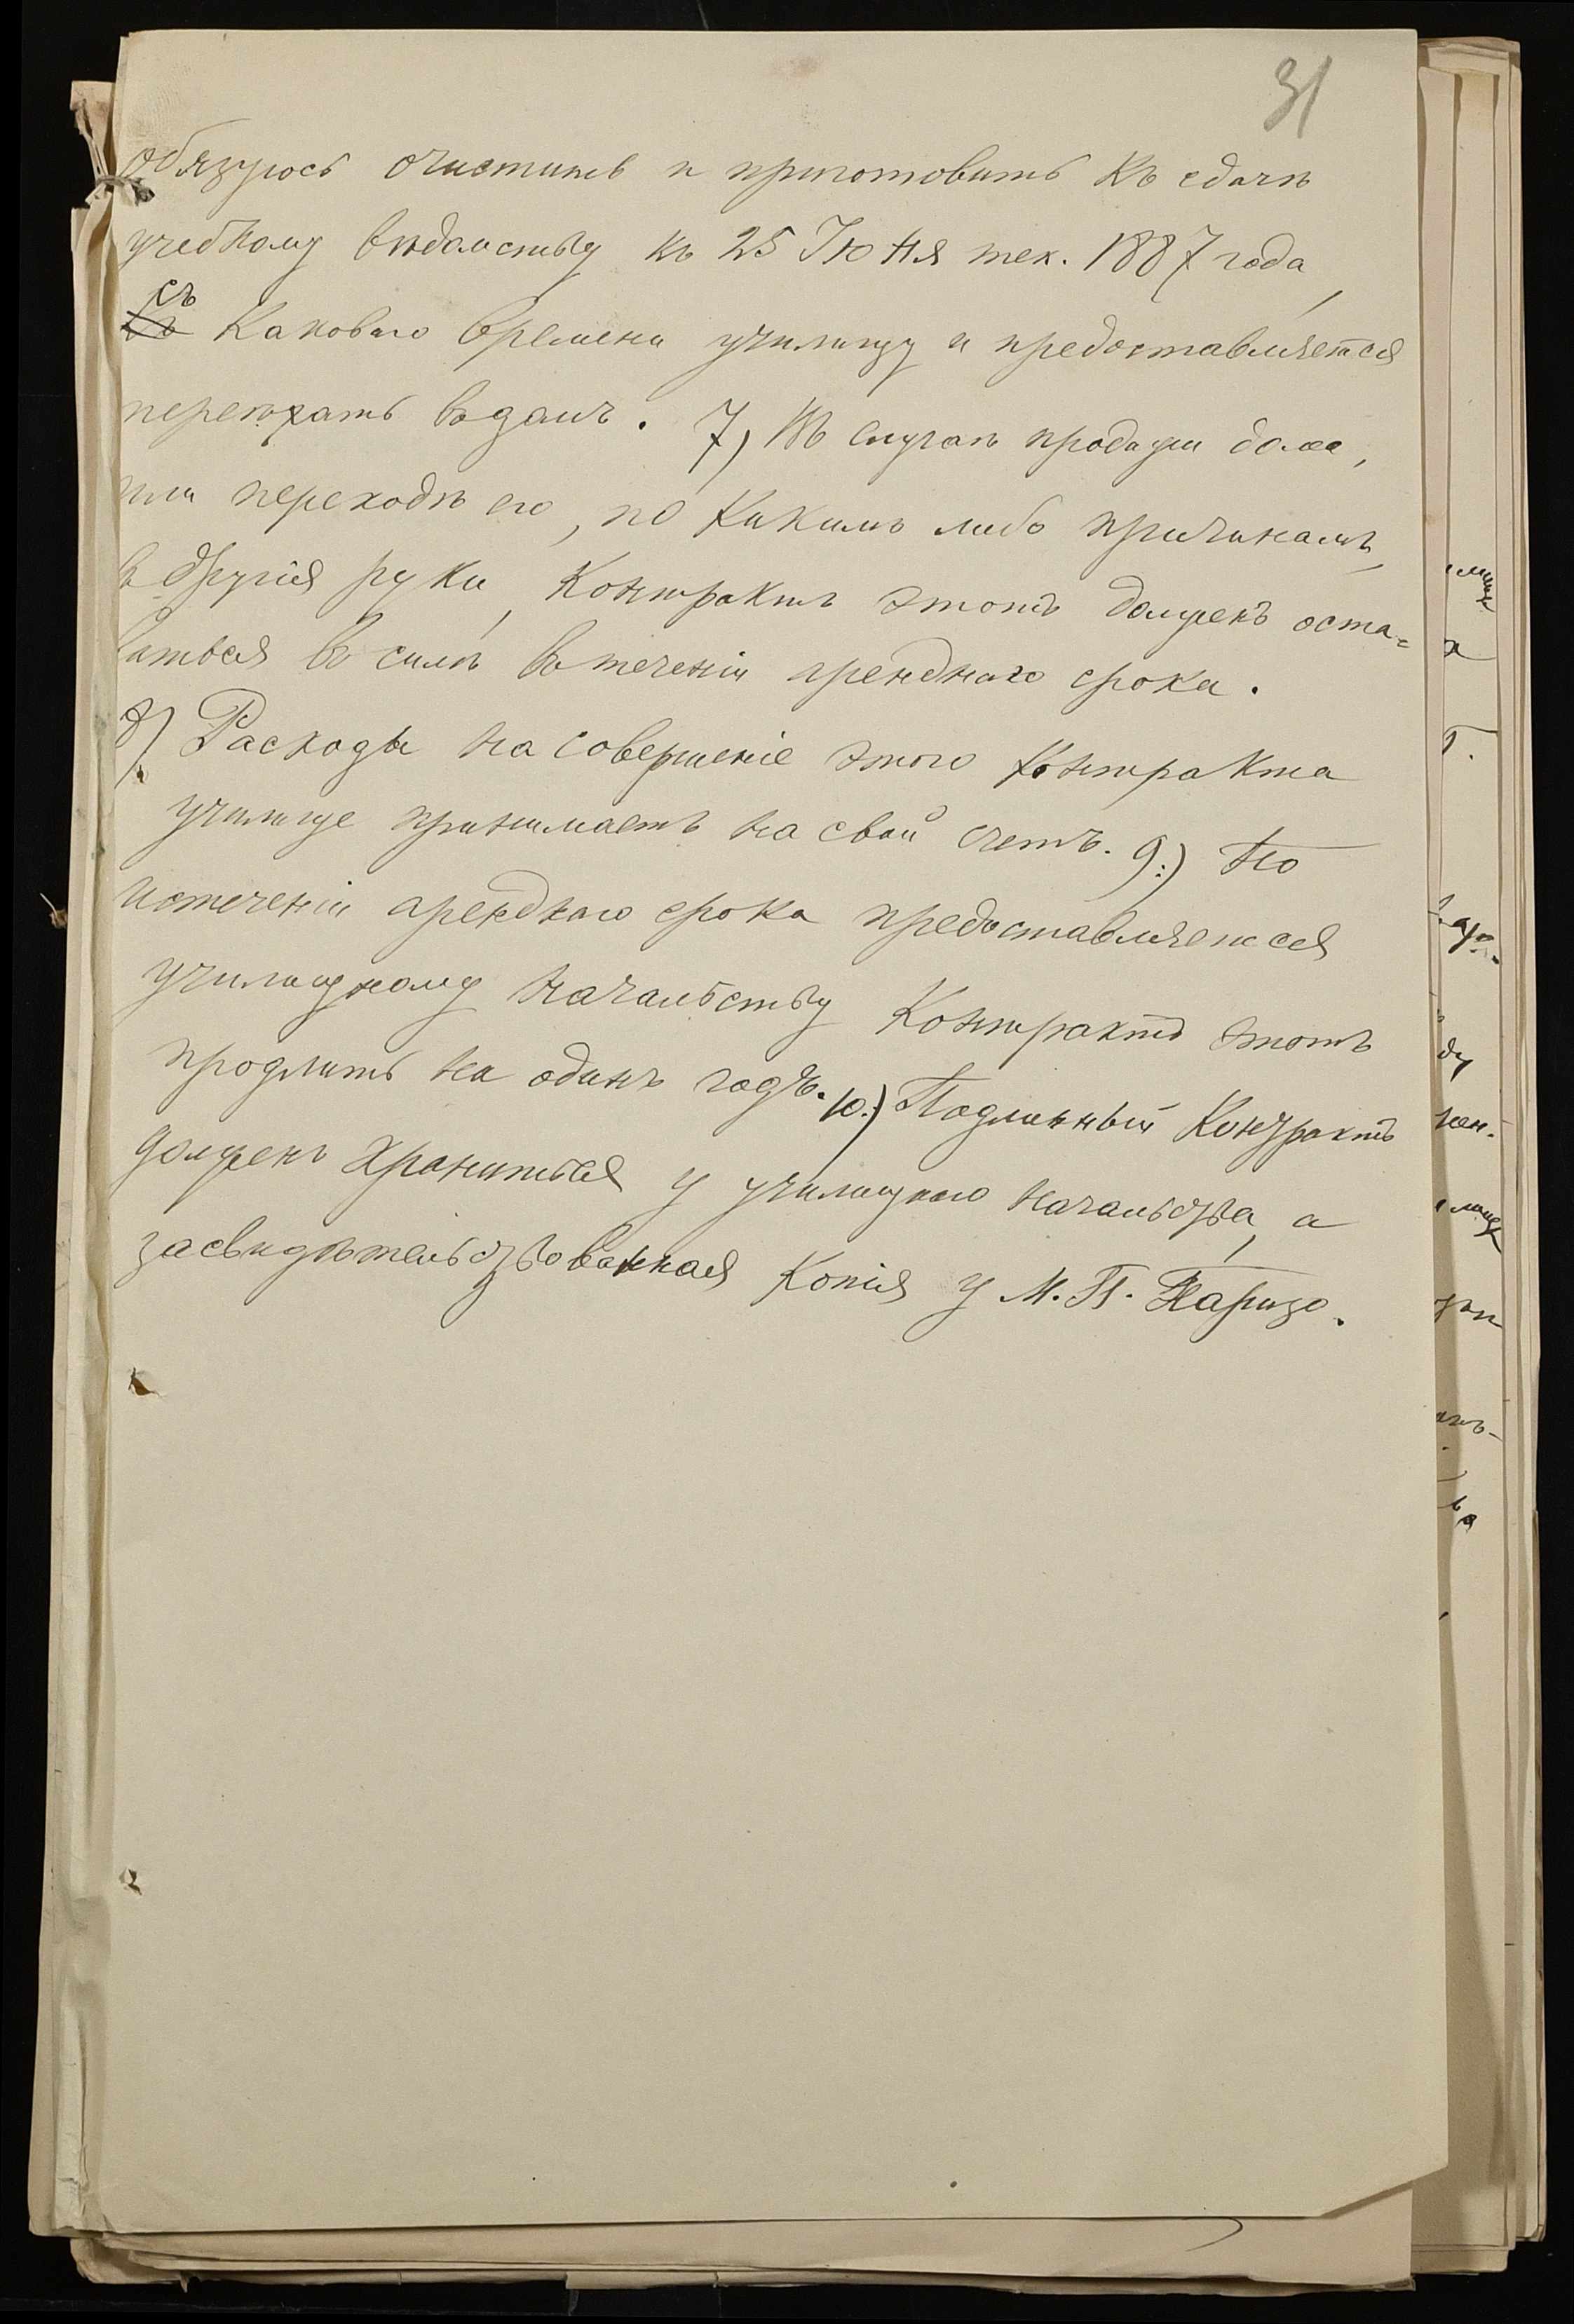 31
обязуюсь очистить и приготовить къ сдачѣ
учебному вѣдомству къ 25 Іюня тек. 1887 года,
съ
каковаго времени училищу и предоставляется
переѣхать въ домъ. 7) Въ случаѣ продажи дома,
или переходѣ его, по какимъ либо причинамъ,
въ другія руки, контрактъ этотъ долженъ оста=
ваться въ силѣ въ теченіи аренднаго срока.
8) Расходы на совершеніе этого контракта
училище принимаетъ на свой счетъ. 9.) По
истеченіи аренднаго срока предоставляется
училищному начальству контрактъ этотъ
продлить на одинъ годъ. 10.) Подлинный контрактъ
долженъ храниться у училищнаго начальства, а
засвидѣтельствованная копія у М. П.